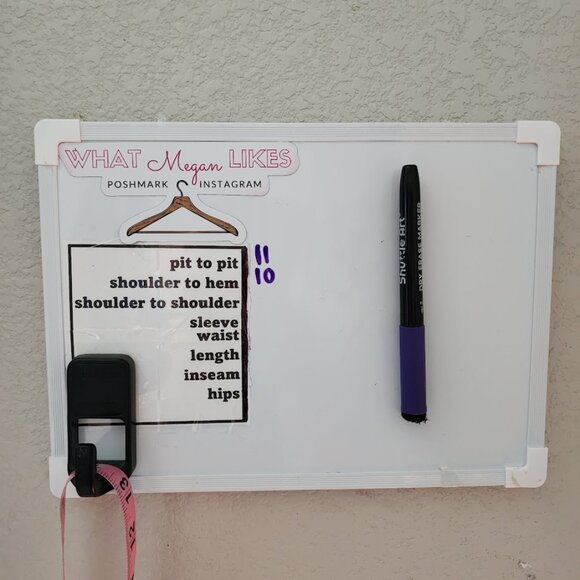 WHAT Megan LIKES
POSHMARK INSTAGRAM
pit to pit 11
shoulder to hem 10
shoulder to shoulder
sleeve
waist
length
inseam
hips
Shuttle Art
DRY ERASE MARKER
13
12